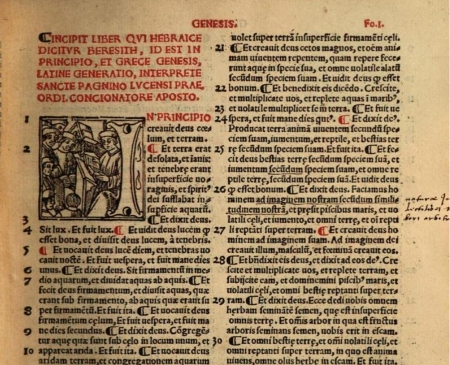 GENESIS.
Fo.I.
CINCIPIT LIBER QVI HEBRAICE
DICITVR BERESITH, ID EST IN
PRINCIPIO, ET GRECE GENESIS,
LATINE GENERATIO, INTERPRETE
SANCTE PAGNINO LVCENSI PRAE
ORDI. CONCIONATORE APOSTO.
1 N PRINCIPIO
creauit deus cœ
lum, et terram.
2 ¶ Et terra erat
desolata, et īanis:
et tenebrę erant
insuperficie vo-
raginis, et spirit⁹
dei sufflabat in
superficie aquarū.
3 ¶ Et dixit deus.
4 Sit lux. Et fuit lux. ¶ Et uidit deus lucem q̄
esset bona, et diuisit deus lucem, à tenebris.
5 ¶ Et uocauit deus lucē diem, et tenebras uo
cauit noctē. Et fuit uespera, et fuit mane dies
6 unus. ¶ Et dixit deus. Sit firmamentū in me
7 dio aquarum, et diuidat aquas ab aquis. ¶ Et
fecit deus firmamentum, et diuisit aquas, quæ
erant sub firmamento, ab aquis quæ erant su
8 per firmamētū. Et fuit ita. ¶ Et uocauit deus
firmamētum cœlum, Et fuit uespera, et fuit ma
9 ne dies secundus. ¶ Et dixit deus. Cōgregē
tur aquę quę sunt sub cœlo in locum unum, et
10 appareat arida. Et fuit ita. ¶ Et uocauit deus
aridam, terram, et congregationem aquarum
uolet super terrā insuperficie firmamēti cœli.
21 ¶ Et creauit deus cetos magnos, et oēm ani
mam uiuentem repentem, quam repere fece
runt aquę in specie sua, et omne uolatile alatū
secūdum speciem suam. Et uidit deus q̄ esset
22 bonum. ¶ Et benedixit eis dicēdo. Crescite,
et multiplicate uos, et replete aquas ī marib⁹,
23 et uolatile multiplicet se in terra. ¶ Et fuit ue
24 spera, et fuit mane dies quīt⁹. ¶ Et dixit de⁹.
Producat terra animā uiuentem secundū spe
ciem suam, iumentum, et reptile, et bestias ter
25 rę secūdum speciem suam. Et fuit ita. ¶ Et fe
cit deus bestias terrę secūdum speciem suā, et
iumentum secūdum speciem suam, et omne re
ptile terrę, secūdum speciem suam. Et uidit deus
26 q̄ esset bonum. ¶ Et dixit deus. Faciamus ho
minem ad imaginem nostram secundum simili-
tudinem nostrā, et pręsit piscibus maris, et uo
latili cęli, et iumento, et omni terrę, et oī repti
27 li reptāti super terram. ¶ Et creauit deus ho
minem ad imaginem suam. Ad imaginem dei
creauit illum, masculū, et foeminā creauit eos.
28 ¶ Et bñdixit eis deus, et dixit ad eos de⁹. Cre
scite et multiplicate uos, et replete terram, et
subijcite eam, et dominemini piscib⁹ maris, et
uolatili cęli, et omni bestię reptanti super ter-
29 ram. ¶ Et dixit deus. Ecce dedi nobis omnem
herbam seminātē semen, quę est insuperficie
omnis terrę. Et omēs arbor in qua est fructus
arboris seminans semen, nobis erit in escam.
30 ¶ Et omni bestię terrę, et omi uolatili cęli, et
omni reptanti super terram, in quo est anima
uiuens, omne olus herbe in escam. Et fuit ita.